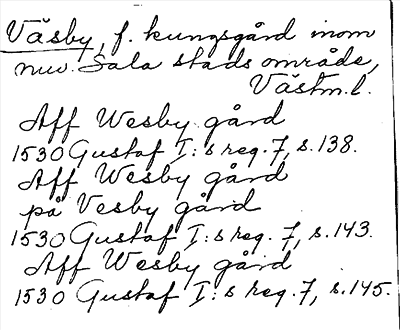 Väsby, f. kungsgård inom
nuv. Sala stads område,
Västm.l.
Aff Wesby gård
1530 Gustaf I:s reg. 7, s. 138.
Aff Wesby gård
på Vesby gård
1530 Gustaf I:s reg. 7, s. 143.
Aff Wesby gård
1530 Gustaf I:s reg. 7, s. 145.